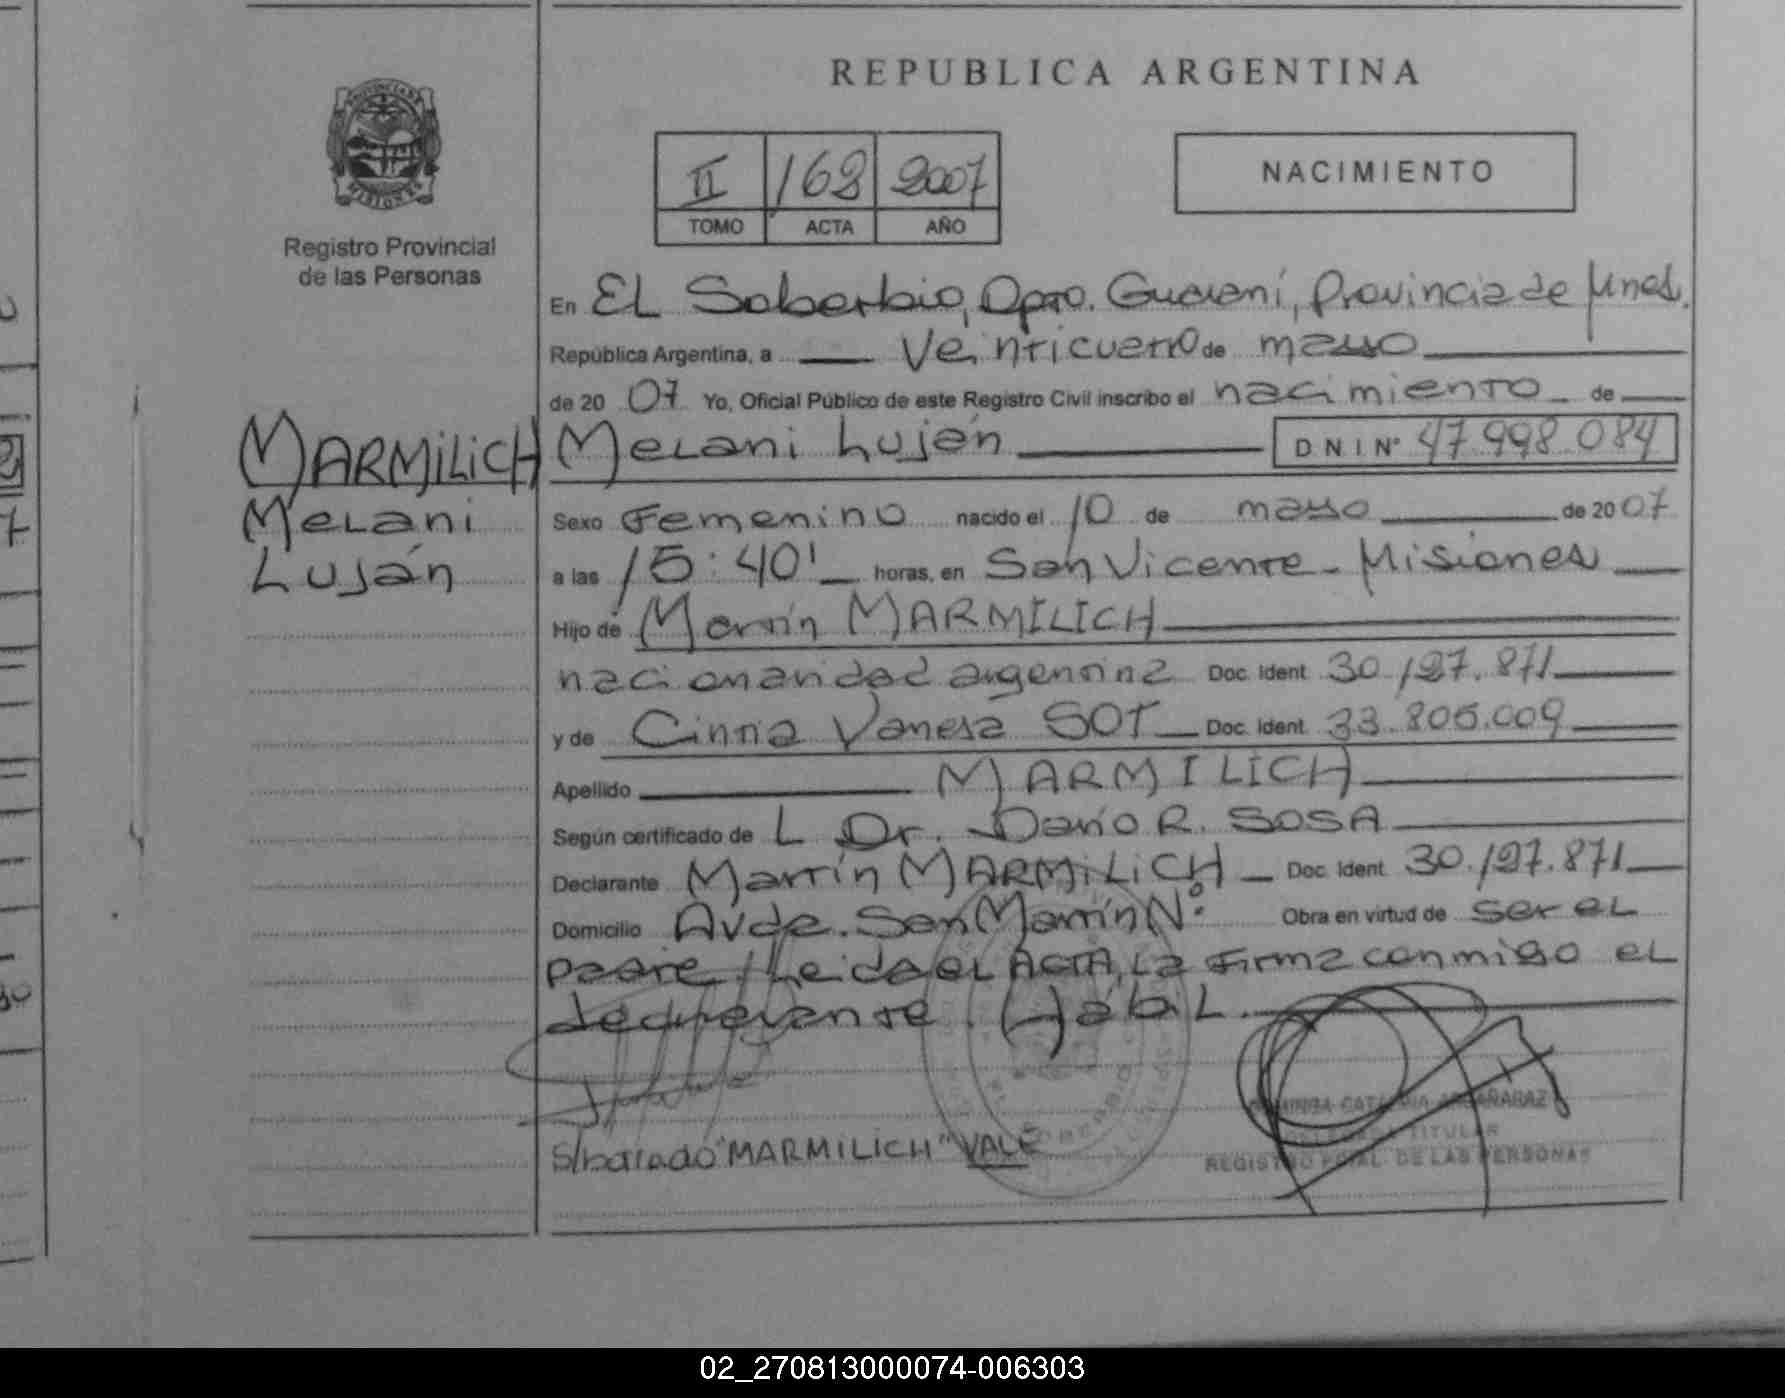 REPUBLICA ARGENTINA
PROVINCIA DE
MISIONES
Registro Provincial
de las Personas
II 168 2007
TOMO ACTA AÑO
NACIMIENTO
En EL Soberbio, Dpto. Guaraní, Provincia de Mnes.
República Argentina, a Veinticuatro de mayo
de 20 07 Yo, Oficial Público de este Registro Civil inscribo el nacimiento de
MARMILICH
Melani
Luján
Melani Luján D N I Nº 47.998.084
Sexo Femenino nacido el 10 de mayo de 20 07
a las 15:40' horas, en San Vicente - Misiones
Hijo de Martín MARMILICH
nacionalidad argentina Doc. Ident. 30.127.871
y de Cintia Vanesa SOT Doc. Ident. 33.805.009
Apellido MARMILICH
Según certificado de L Dr. Darío R. SOSA
Declarante Martín MARMILICH Doc. Ident. 30.127.871
Domicilio Avda. San Martín Nº Obra en virtud de ser el
padre / Leida el ACTA, La Firma conmigo el
declarante. Hábil.
S/borrado "MARMILICH" VALE
TITULAR
REGISTRO PCIAL. DE LAS PERSONAS
02_270813000074-006303